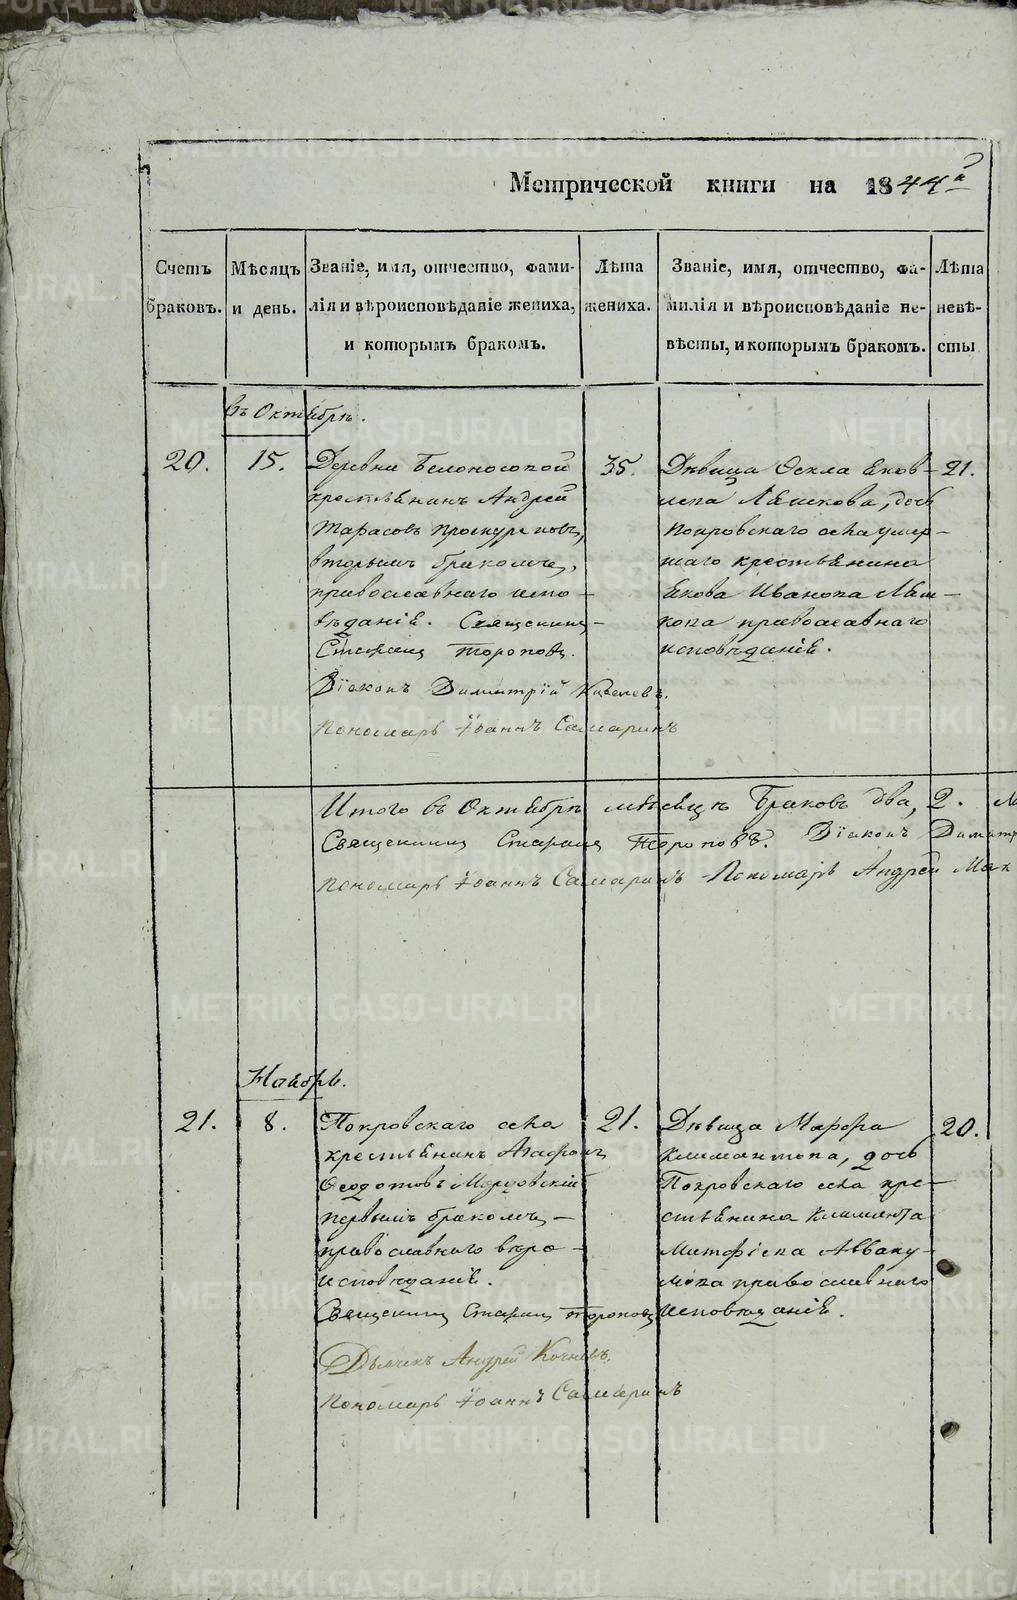 Метрической книги на 1844й
Счетъ браковъ.
Мѣсяцъ и день.
Званіе, имя, отчество, фами-
лія и вѣроисповѣданіе жениха,
и которымъ бракомъ.
Лѣта жениха.
Званіе, имя, отчество, фа-
милія и вѣроисповѣданіе не-
вѣсты, и которымъ бракомъ.
Лѣта невѣ-
сты
въ Октябрѣ.
20.
15.
Деревни Белоносовой
крестьянинъ Андрей
Тарасовъ
вторымъ бракомъ,
православнаго испо-
вѣданія. Священникъ
Стефанъ Тороповъ.
Діаконъ Димитрій
Пономарь Іоаннъ Самаринъ
35.
Дѣвица Фекла Яков-
лева дочь
Покровскаго села умер-
шаго крестьянина
Якова Иванова
православнаго
исповѣданія.
21.
Итого въ Октябрѣ мѣсяцѣ браковъ два, 2.
Священникъ Стефанъ Тороповъ. Діаконъ
Пономарь Іоаннъ Самаринъ Пономарь Андрей
Ноябрь.
21.
8.
Покровскаго села
крестьянинъ Агафонъ
Феодотовъ
первымъ бракомъ
православнаго вѣро-
исповѣданія.
Священникъ Стефанъ Тороповъ
Дьячекъ Андрей
Пономарь Іоаннъ Самаринъ
21.
Дѣвица Марфа
дочь
Покровскаго села кре-
стьянина Климента
Авваку-
мова православнаго
исповѣданія.
20.
METRIKI.GASO-URAL.RU